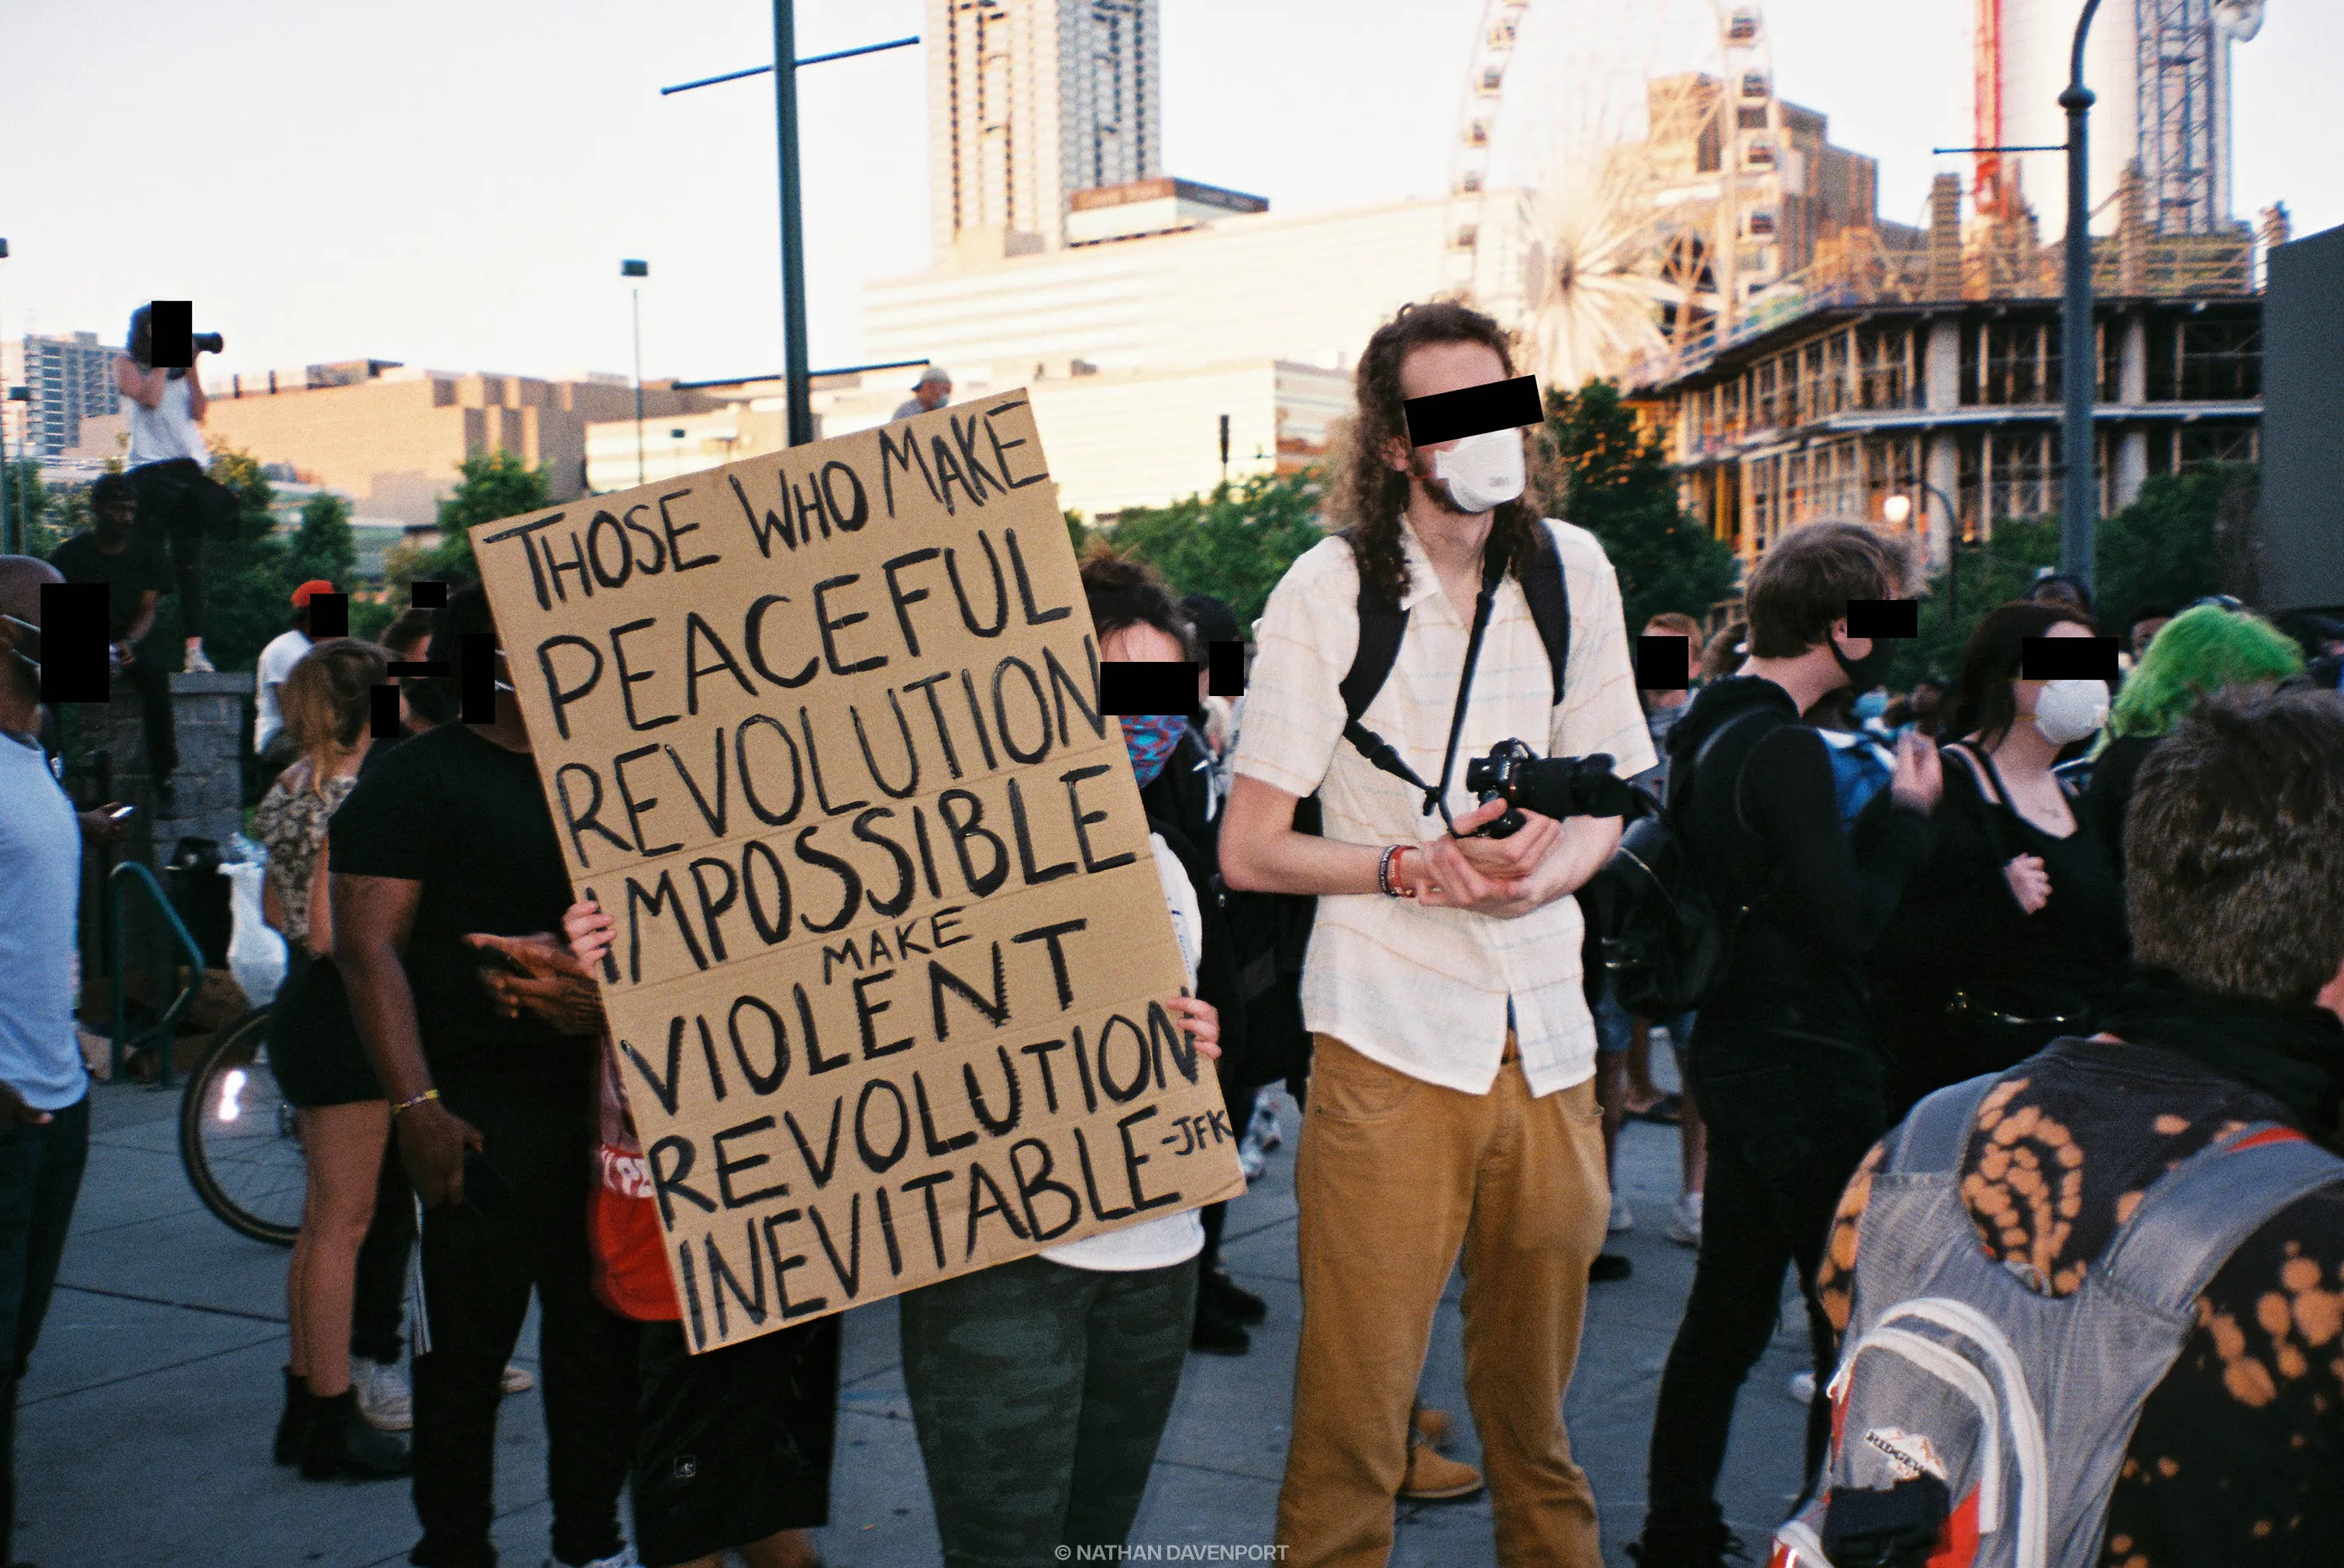 THOSE WHO MAKE
PEACEFUL
REVOLUTION
IMPOSSIBLE
MAKE
VIOLENT
REVOLUTION
INEVITABLE -JFK
© NATHAN DAVENPORT